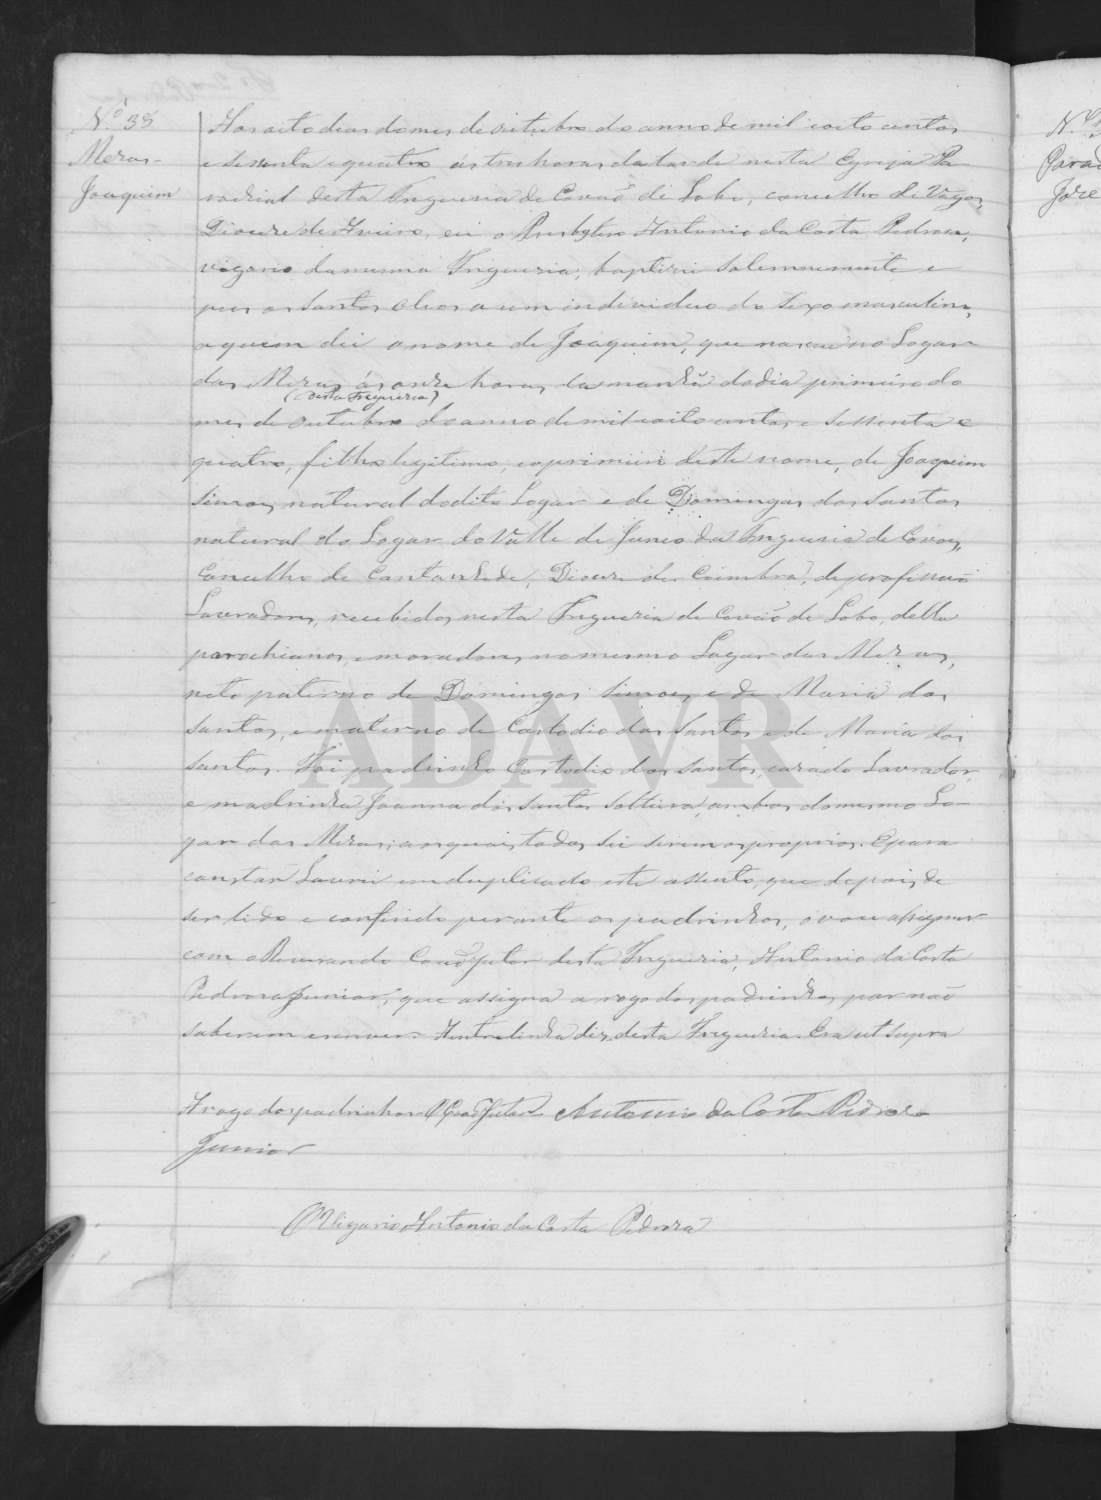 Nº 38
Mezas-
Joaquim
Aos oito dias do mes de outubro do anno de mil e oito centos
e sessenta e quatro ás tres horas da tarde nesta Egreja Pa-
rochial desta Freguesia de Covão de Lobo, concelho de Vagos,
Diocese de Aveiro, eu o Presbytero Antonio da Costa Pedroza,
vigario da mesma Freguesia, baptizei solemnemente e
pus os Santos oleos a um individuo do sexo masculino,
a quem dei o nome de Joaquim, que nasceu no Logar
das Mezas ás onze horas da manhã do dia primeiro do
(desta Freguesia)
mes de outubro do anno de mil e oito centos e sessenta e
quatro, filho legitimo, e o primeiro deste nome, de Joaquim
Simoes natural do dito Logar e de Domingas dos Santos
natural do Logar do Valle de Junco da Freguesia de Covoes,
Concelho de Cantanhede, Diocese de Coimbra, de profissão
Lavradores, recebidos nesta Freguesia de Covão de Lobo, della
parochianos, e moradores no mesmo Logar das Mezas,
neto paterno de Domingos Simoes e de Maria dos
Santos, e materno de Custodio dos Santos e de Maria dos
Santos. Foi padrinho Custodio dos Santos, cazado Lavrador,
e madrinha Joanna dos Santos solteira, ambos do mesmo Lo-
gar das Mezas; os quaes todos sei serem os proprios. E para
constar Lavrei em duplicado este assento, que depois de
ser lido e conferido perante os padrinhos, o vou assignar
com o Reverendo Coadjutor desta Freguesia, Antonio da Costa
Pedroza Junior, que assigna a rogo dos padrinhos, por não
saberem escrever. A entrelinha diz, desta Freguesia. Era ut supra
A rogo dos padrinhos O Coadjutor Antonio da Costa Pedroza
Junior
O Vigario Antonio da Costa Pedroza
ADAVR
Nº
Jose